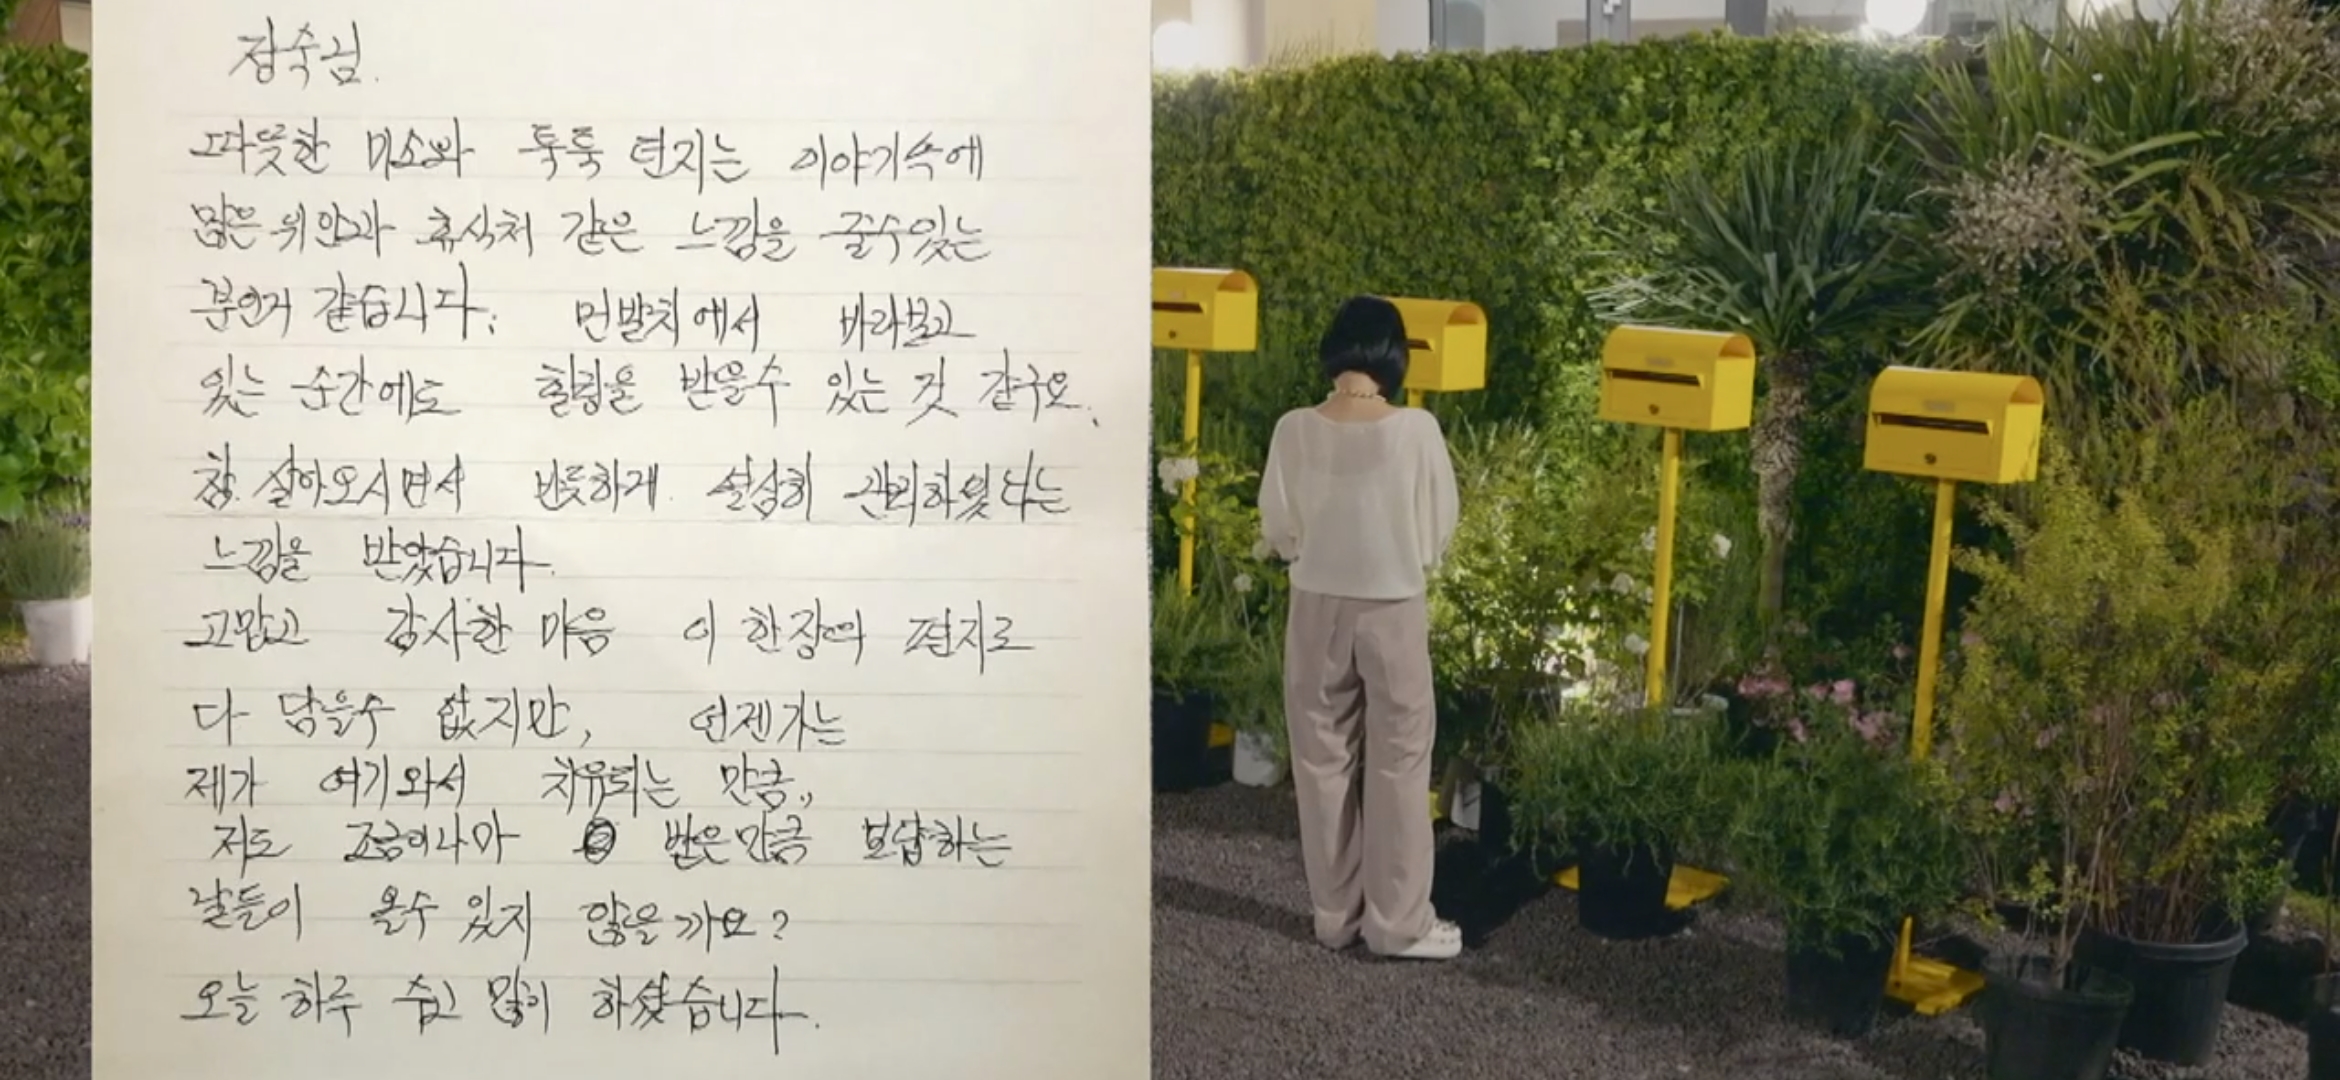 정숙님.
따뜻한 미소와 툭툭 던지는 이야기속에
많은 위안과 휴식처 같은 느낌을 줄수있는
분인거 같습니다.
먼발치에서 바라보고
있는 순간에도 힐링을 받을수 있는 것 같구요.
참 살아오시면서 반듯하게 성실히 관리하셨다는
느낌을 받았습니다.
고맙고 감사한 마음 이 한장의 편지로
다 담을수 없지만, 언젠가는
제가 여기와서 치유되는 만큼,
저도 조금이나마 받은만큼 보답하는
날들이 올수 있지 않을까요?
오늘 하루 수고 많이 하셨습니다.